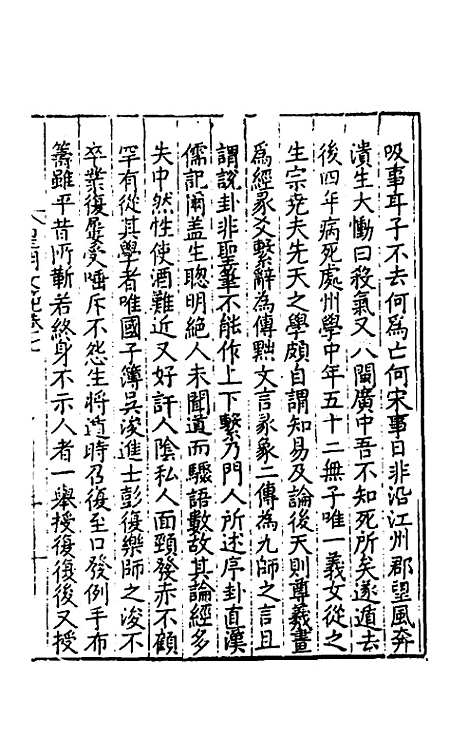 吸事耳子不去何為亡何宋事日非沿江州郡望風奔
潰生大慟曰殺氣又入閩廣中吾不知死所矣遂遁去
後四年病死處州學中年五十二無子唯一義女從之
生宗堯夫先天之學頗自謂知易及論後天則尊羲畫
為經彖爻繫辭為傳黜文言彖象二傳為九師之言且
謂說卦非聖筆不能作上下繫乃門人所述序卦直漢
儒記爾蓋生聰明絕人未聞道而驟語數故其論經多
失中然性使酒難近又好訐人陰私人面頸發赤不顧
罕有從其學者唯國子簿吳浚進士彭復樂師之浚不
卒業復屢受唾斥不怨生將逃時乃復至口發例手布
籌雖平昔所靳若終身不示人者一舉授復復後又授